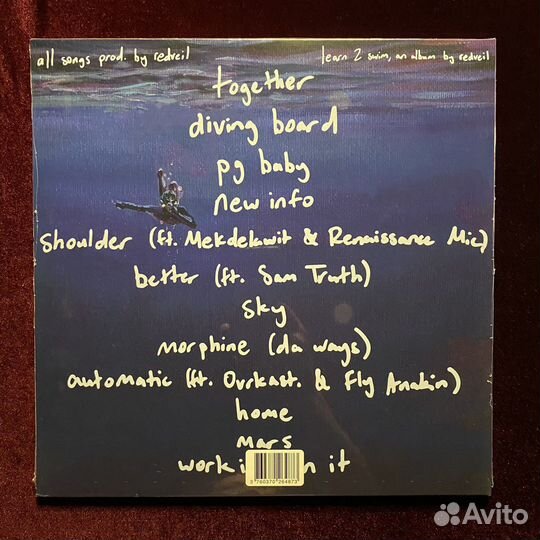 all songs prod. by redveil
learn 2 swim, an album by redveil
together
diving board
pg baby
new info
shoulder (ft. Mekdelawit & Renaissance Mic)
better (ft. Sam Truth)
sky
morphine (da ways)
automatic (ft. Ovrkast. & Fly Anakin)
home
mars
it
3 760370 264873
Avito